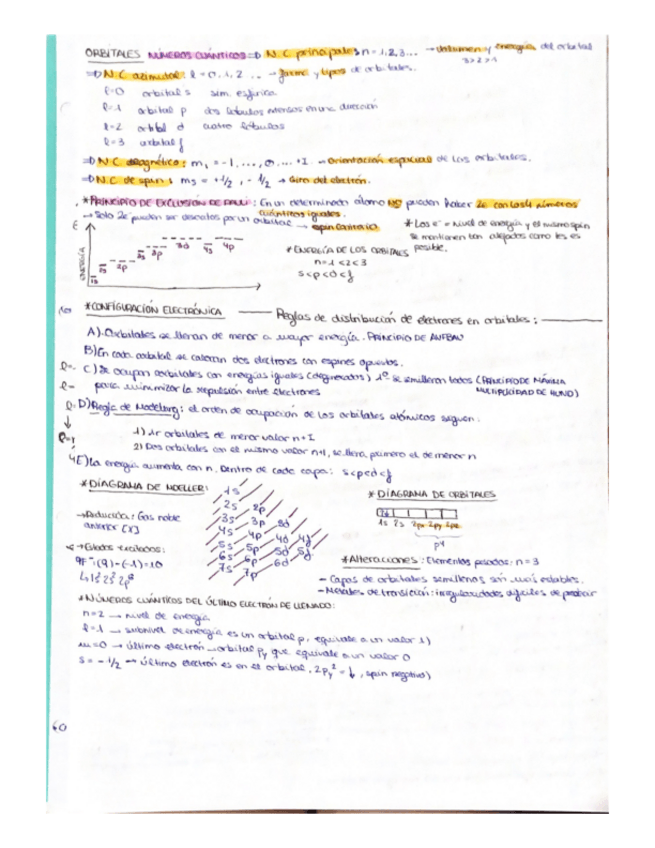 ORBITALES NÚMEROS CUÁNTICOS => N.C. principales: n=1,2,3... → volumen y energía del orbital
3>2>1
=> N.C. azimutal: l=0,1,2 ... → forma y tipos de orbitales.
l=0 orbital s sim. esférica
l=1 orbital p dos lóbulos intensos en una dirección
l=2 orbital d cuatro lóbulos
l=3 orbital f
=> N.C. magnético: m₁ = -1, ..., 0 ... +1. → Orientación espacial de los orbitales.
=> N.C. de spin: ms = +1/2, -1/2 → Giro del electrón.
*PRINCIPIO DE EXCLUSIÓN DE PAULI: En un determinado átomo NO pueden haber 2e⁻ con los 4 números
cuánticos iguales.
→ Solo 2e⁻ pueden ser descritos por un orbital → spin contrario
* Los e⁻ = nivel de energía y el mismo spin
se mantienen tan alejados como les es
posible.
E
ENERGÍA
1s 2s 2p 3s 3p 3d 4s 4p
* ENERGÍA DE LOS ORBITALES
n=1<2<3
s<p<d<f
*CONFIGURACIÓN ELECTRÓNICA Reglas de distribución de electrones en orbitales:
A) Orbitales se llenan de menor a mayor energía. PRINCIPIO DE AUFBAU
B) En cada orbital se colocan dos electrones con espines opuestos.
C) Se ocupan orbitales con energías iguales (degenerados) 1º se semillenan todos (PRINCIPIO DE MÁXIMA
MULTIPLICIDAD DE HUND)
para minimizar la repulsión entre electrones
D) Regla de Madelung: el orden de ocupación de los orbitales atómicos siguen.
1) 1r orbitales de menor valor n+l
2) Dos orbitales con el mismo valor n+l, se llena primero el de menor n
E) La energía aumenta con n. Dentro de cada capa: s<p<d<f
*DIAGRAMA DE MOELLER:
1s
2s 2p
3s 3p 3d
4s 4p 4d 4f
5s 5p 5d 5f
6s 6p 6d
7s 7p
→ Reducida: Gas noble
anterior [X]
→ Estados excitados:
9F⁻: (9)-(-1)=10
↳ 1s² 2s² 2p⁶
* DIAGRAMA DE ORBITALES
1s 2s 2px 2py 2pz
*Alteraciones: Elementos pesados: n=3
- Capas de orbitales semillenos son más estables.
- Metales de transición: irregularidades difíciles de predecir
*NÚMEROS CUÁNTICOS DEL ÚLTIMO ELECTRÓN DE LLENADO:
n=2 → nivel de energía
l=1 → subnivel de energía es un orbital p, equivale a un valor 1)
m=0 → último electrón → orbital py que equivale a un valor 0
s = -1/2 → último electrón es en el orbital, 2py² = ↓, spin negativo)
60